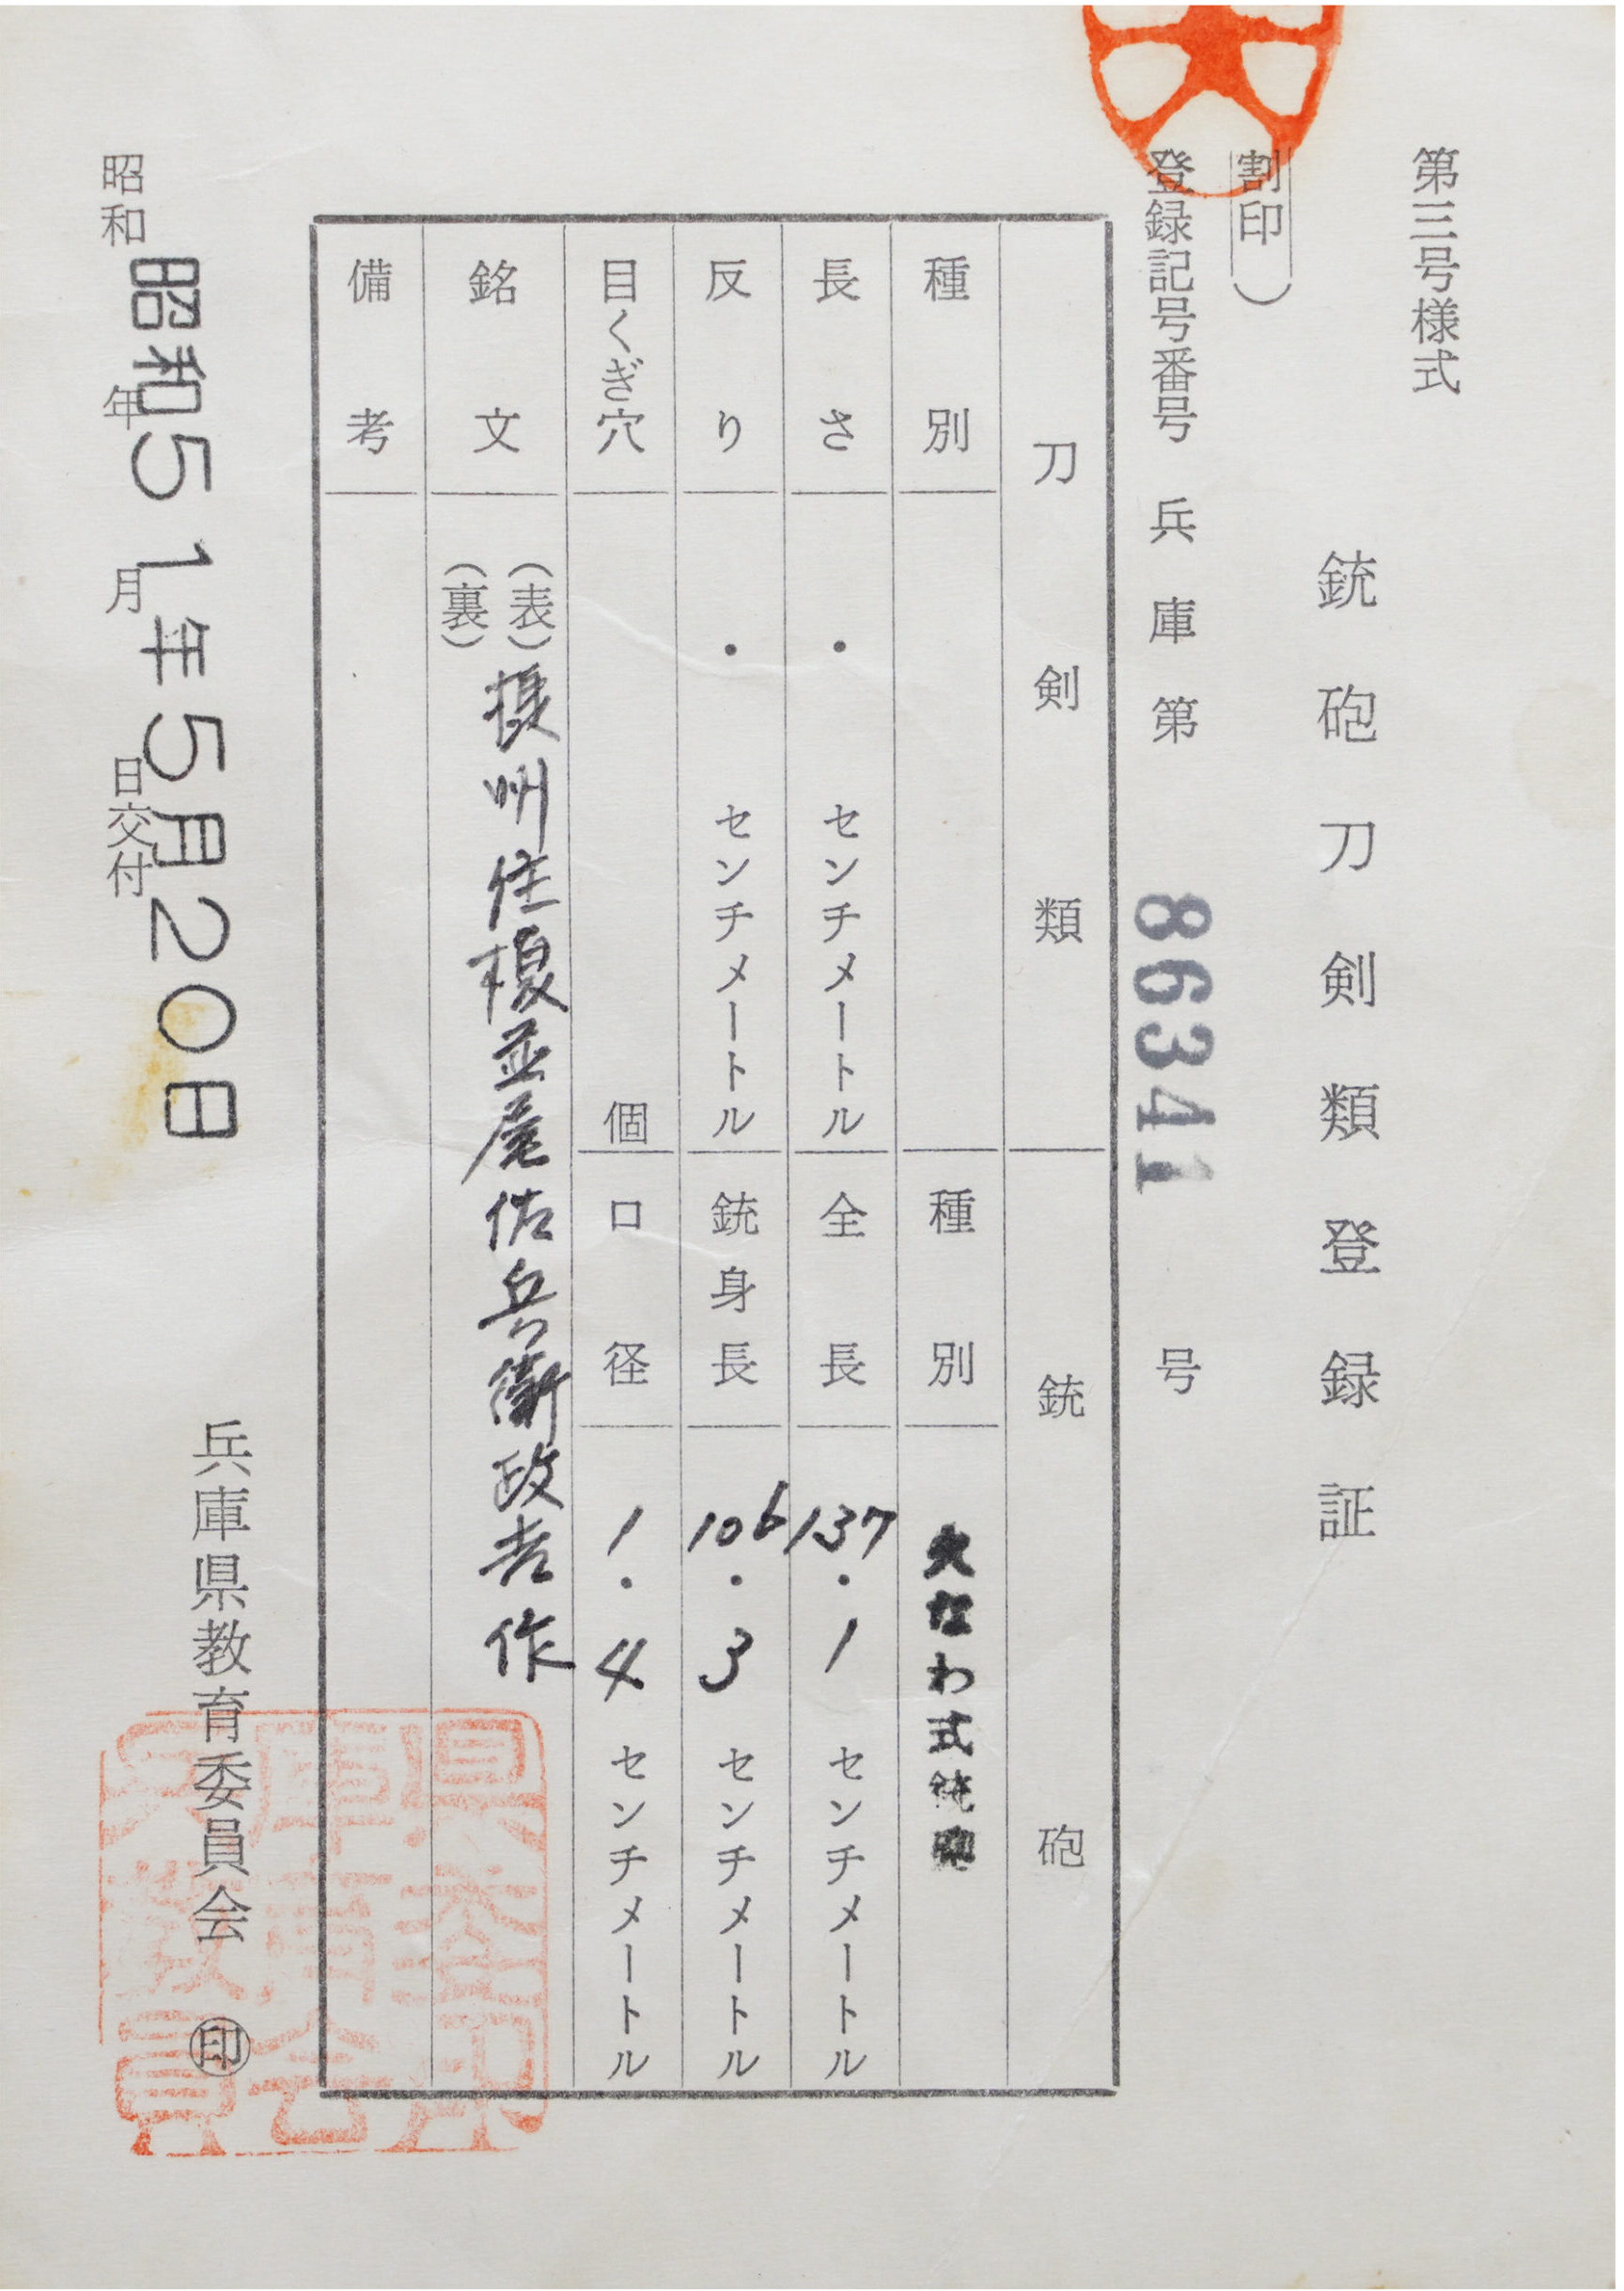 第三号様式
銃砲刀剣類登録証
割印)
登録記号番号 兵庫第 86341 号
刀剣類 銃砲
種別 種別 火なわ式銃砲
長さ ・ センチメートル 全長 137・1 センチメートル
反り ・ センチメートル 銃身長 106・3 センチメートル
目くぎ穴 個 口径 1・4 センチメートル
銘文 (表) 摂州住榎並屋佐兵衛政吉作
(裏)
備考
昭和 年 月 日交付
昭和51年5月20日
兵庫県教育委員会 ㊞